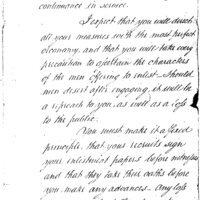 continuance in service.
I expect that you will direct
all your measures with the most perfect
economy, and that you will take every
precaution to ascertain the characters
of the men offering to enlist. Should
men desert after engaging, it will be
a reproach to you, as well as a loss
to the public.
You must make it a fixed
principle, that your recruits sign
your enlistment papers before
and that they take their oaths before
you make any advances. Any loss